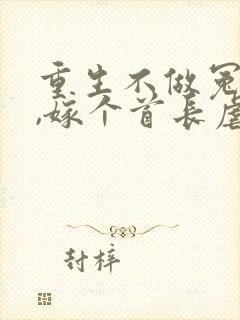 重生不做冤
,嫁个首长虐
封梓